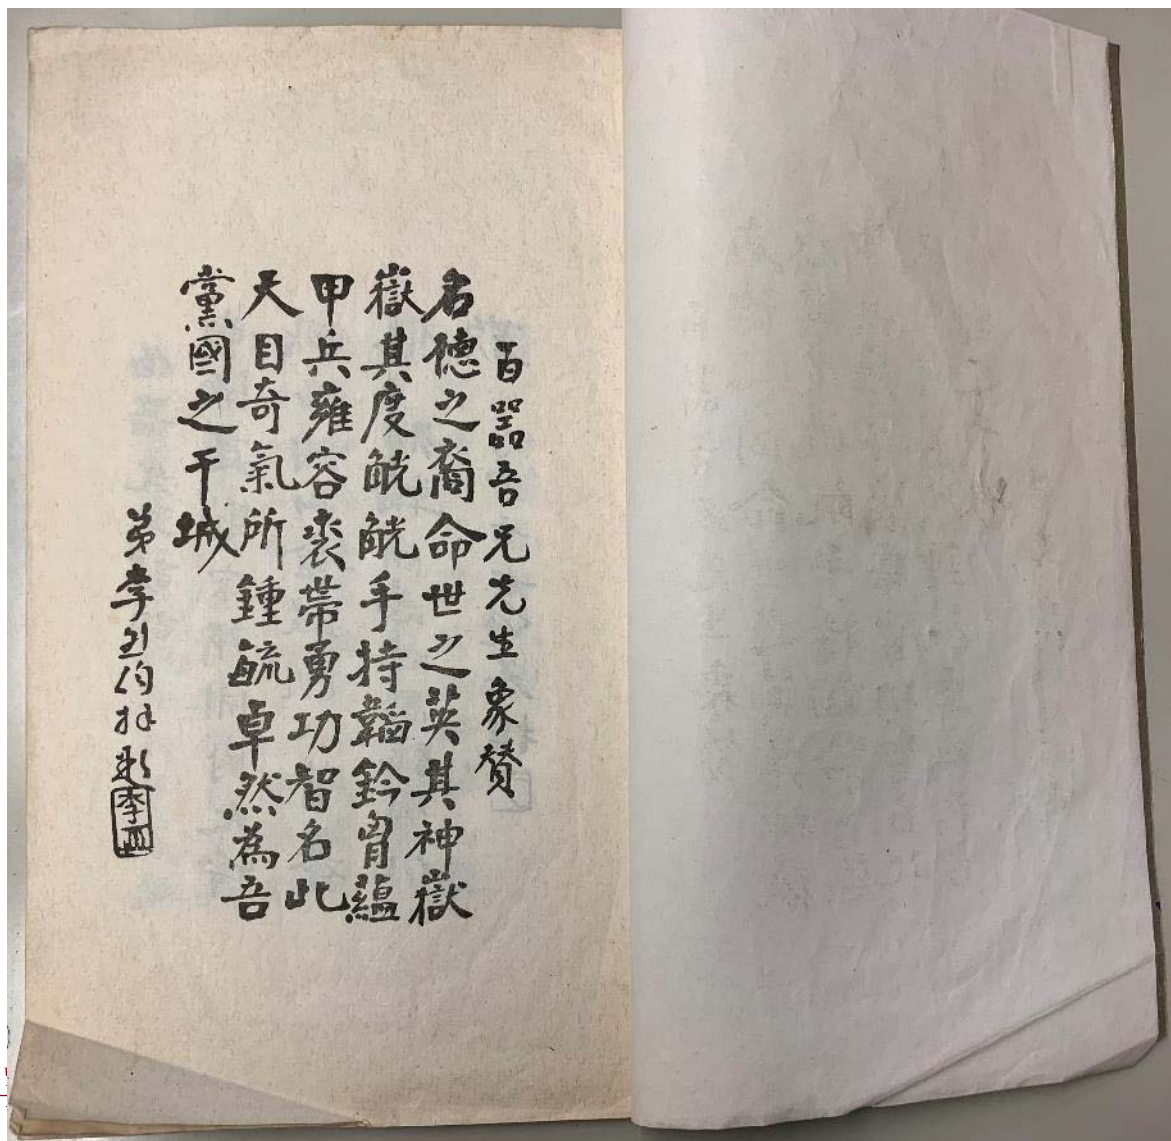 百器吾兄先生象贊
名德之裔命世之英其神嶽
嶽其度觥觥手持韜鈐胷蘊
甲兵雍容裘帶勇功智名此
天目奇氣所鍾毓卓然為吾
黨國之干城
弟李拜題